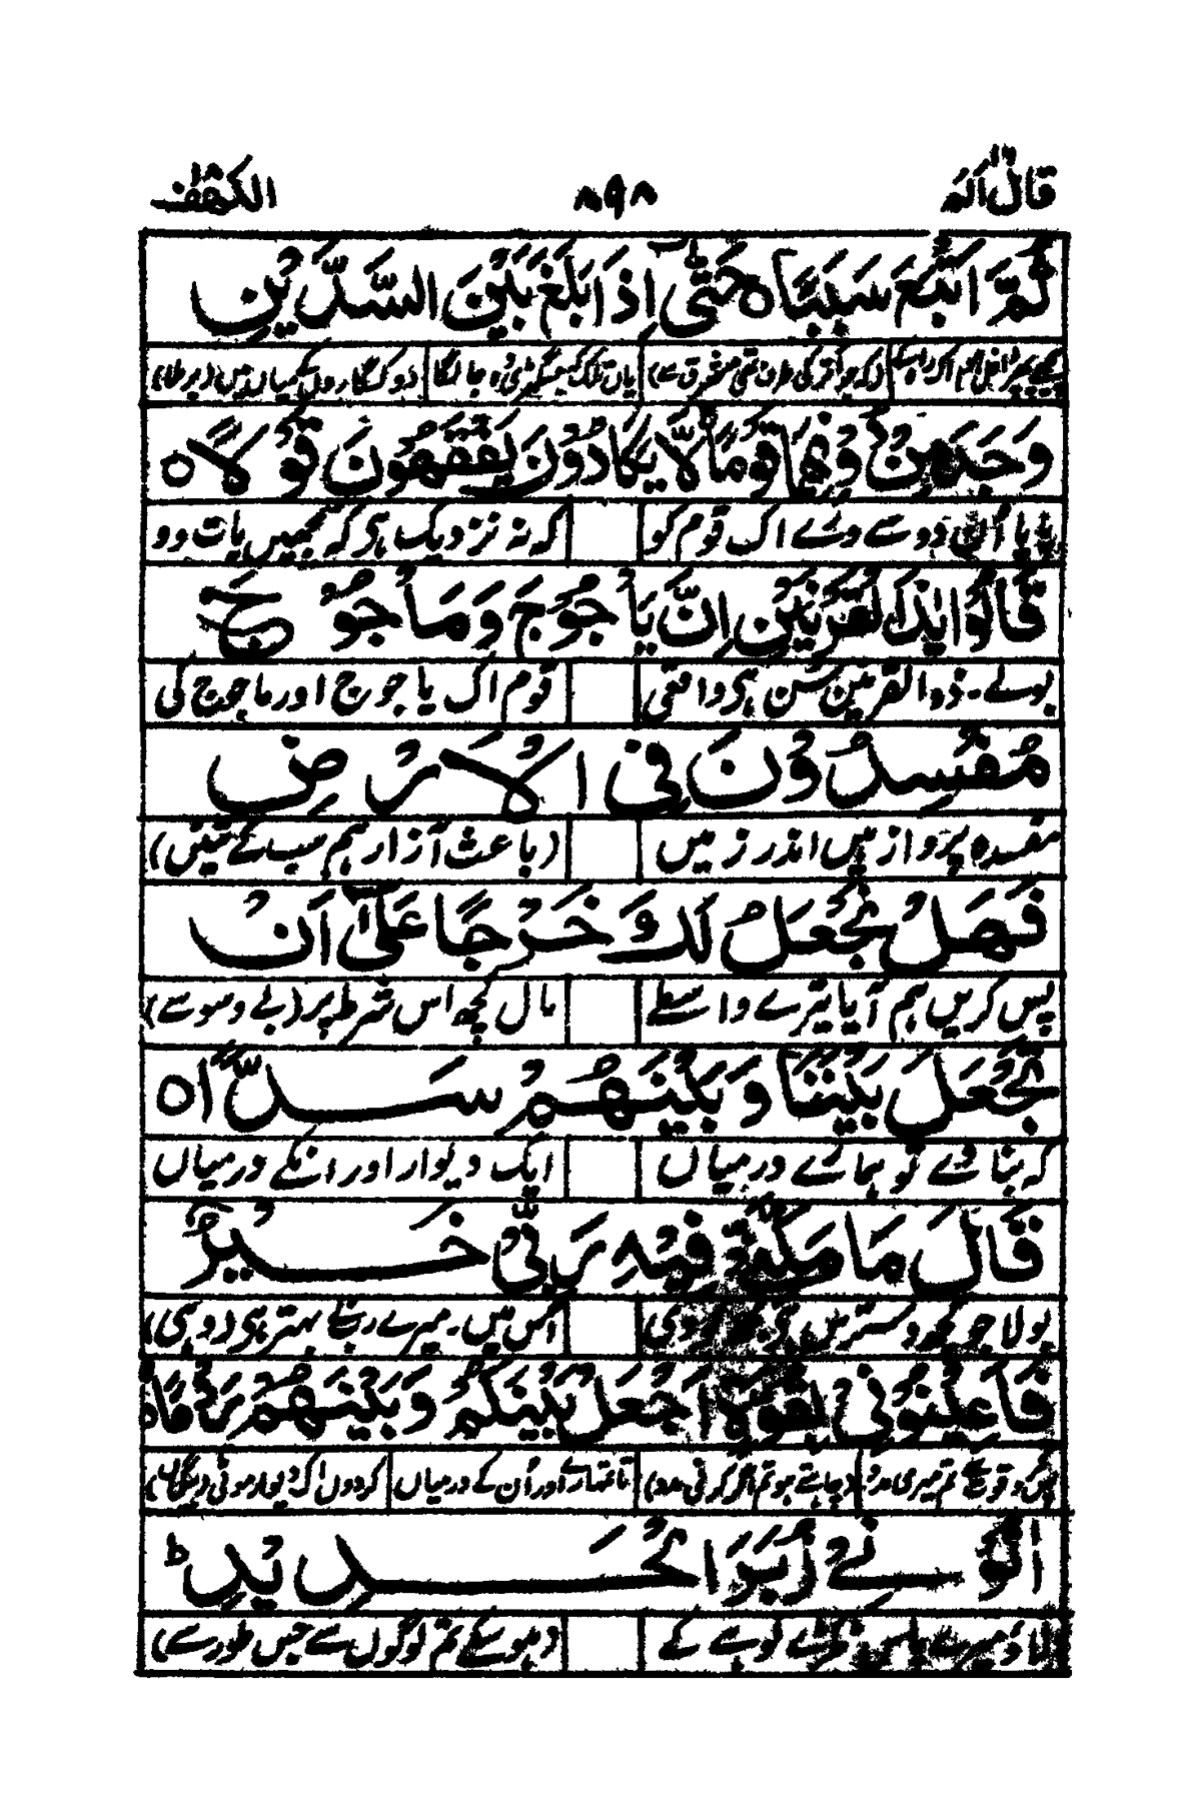 قال الم ۸۹۸ الكهف
ثُمَّ اَتْبَعَ سَبَبًا ہ حَتّٰى اِذَا بَلَغَ بَيْنَ السَّدَّيْنِ
یاں تلک کہ جا لگا
وَجَدَ مِنْ دُوْنِهِمَا قَوْمًا لَّا يَكَادُوْنَ يَفْقَهُوْنَ قَوْلًا ہ
سے ورے اک قوم کو کہ نہ نزدیک ہی کہ سمجھیں بات وو
قَالُوْا يٰذَا الْقَرْنَيْنِ اِنَّ يَاْجُوْجَ وَمَاْجُوْجَ
بولے۔ ذو القرنین سن ہی واقعی قوم اک یاجوج اور ماجوج کی
مُفْسِدُوْنَ فِى الْاَرْضِ
مفسدہ پرداز ہیں اندر زمیں (باعث آزار ہم سب کے تئیں)
فَهَلْ نَجْعَلُ لَكَ خَرْجًا عَلٰٓى اَنْ
پس کریں ہم آیا تیرے واسطے مال کچھ اس شرط پر (بے وسوسے)
تَجْعَلَ بَيْنَنَا وَبَيْنَهُمْ سَدًّا ہ
کہ بنا دے تو ہمارے درمیاں ایک دیوار اور انکے درمیاں
قَالَ مَا مَكَّنِّىْ فِيْهِ رَبِّىْ خَيْرٌ
بولا جو کچھ دسترس اس میں۔ میرے رب نے بہتر ہی (وہی)
فَاَعِيْنُوْنِىْ بِقُوَّةٍ اَجْعَلْ بَيْنَكُمْ وَبَيْنَهُمْ رَدْمًا ہ
تم میری مدد (چاہتے ہو تم اگر کرنی مدد) تا تمھارے اور اُن کے درمیاں کردوں اک دیوار موٹی
اٰتُوْنِىْ زُبَرَ الْحَدِيْدِ ط
لاؤ میرے پاس لوہے کے (ہو سکے تم لوگوں سے جس طور سے)